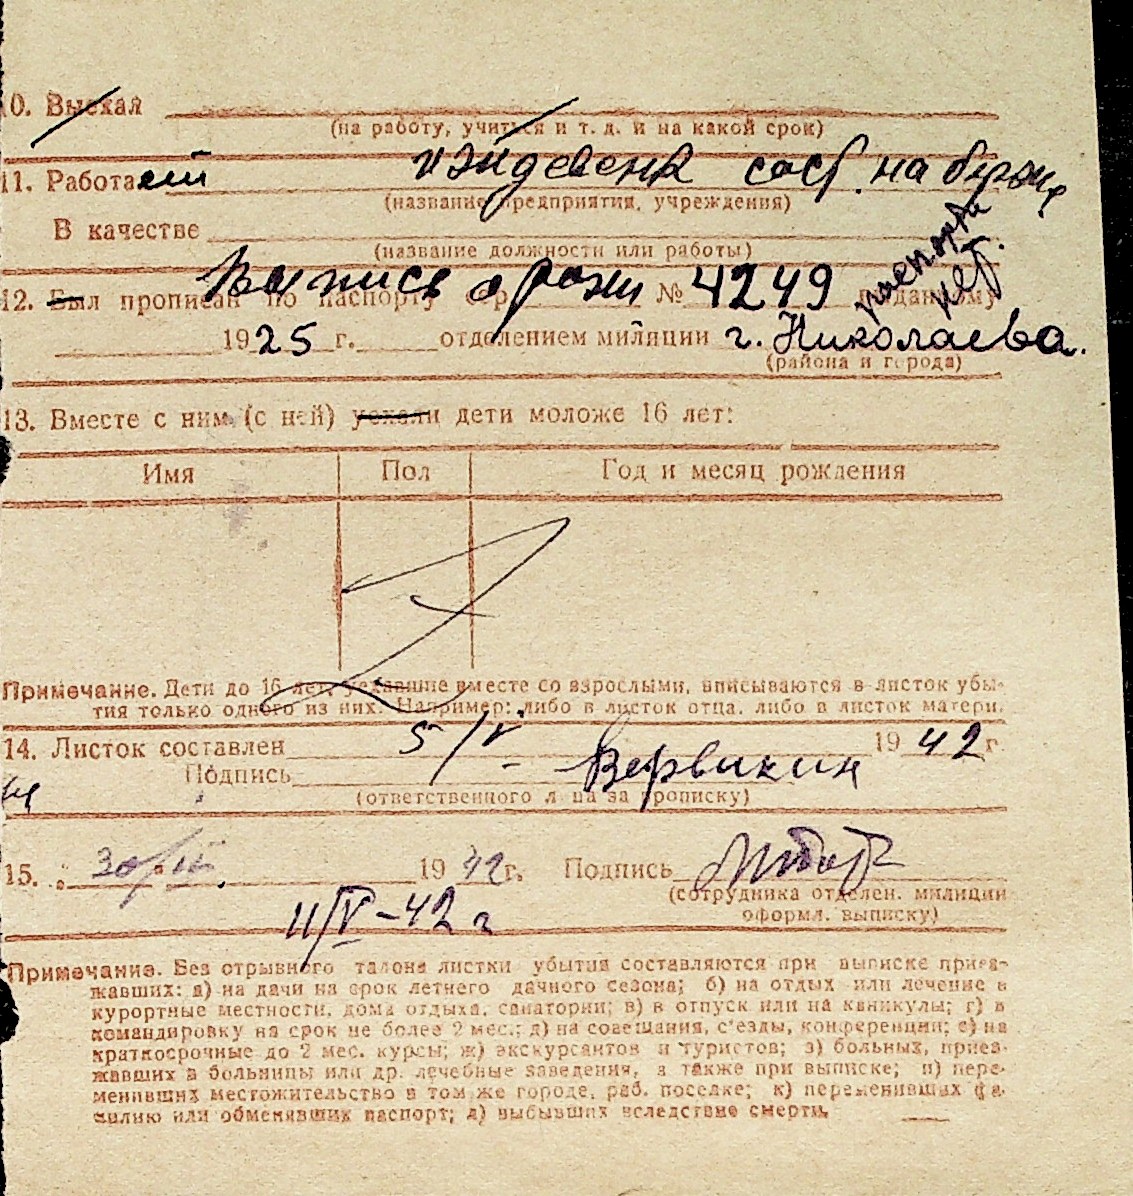 10. Выехал
(на работу, учиться и т. д. и на какой срок)
11. Работает иждевенк сост. на брони
(название предприятия, учреждения)
В качестве
(название должности или работы)
паспорта нет.
12. Был прописан по паспорту сер. № 4249 выданному
Выпись о рожи
1925 г. отделением милиции г. Николаева.
(района и города)
13. Вместе с ним (с ней) уехали дети моложе 16 лет:
Имя Пол Год и месяц рождения
Примечание. Дети до 16 лет, уехавшие вместе со взрослыми, вписываются в листок убы-
тия только одного из них. Например: либо в листок отца, либо в листок матери.
14. Листок составлен 5/V 1942 г.
Подпись
(ответственного лица за прописку)
15. 1942 г. Подпись
(сотрудника отделен. милиции
оформл. выписку)
11/V-42 г
Примечание. Без отрывного талона листки убытия составляются при выписке приез-
жавших: а) на дачи на срок летнего дачного сезона; б) на отдых или лечение в
курортные местности, дома отдыха, санатории; в) в отпуск или на каникулы; г) в
командировку на срок не более 2 мес.; д) на совещания, с'езды, конференции; е) на
краткосрочные до 2 мес. курсы; ж) экскурсантов и туристов; з) больных, приез-
жавших в больницы или др. лечебные заведения, а также при выписке; и) пере-
менивших местожительство в том же городе, раб. поселке; к) переменивших фа-
милию или обменявших паспорт; л) выбывших вследствие смерти.